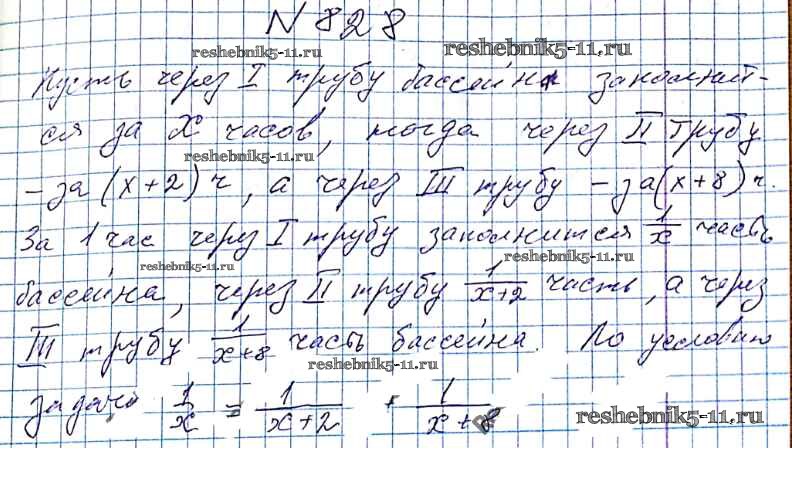 N 828
reshebnik5-11.ru reshebnik5-11.ru
Пусть через I трубу бассейн заполнит-
ся за x часов, тогда через II трубу
reshebnik5-11.ru
– за (x+2) ч, а через III трубу – за (x+8) ч.
За 1 час через I трубу заполнится 1/x часть
reshebnik5-11.ru reshebnik5-11.ru
бассейна, через II трубу 1/(x+2) часть, а через
III трубу 1/(x+8) часть бассейна. По условию
reshebnik5-11.ru
задачи 1/x = 1/(x+2) + 1/(x+8)
reshebnik5-11.ru